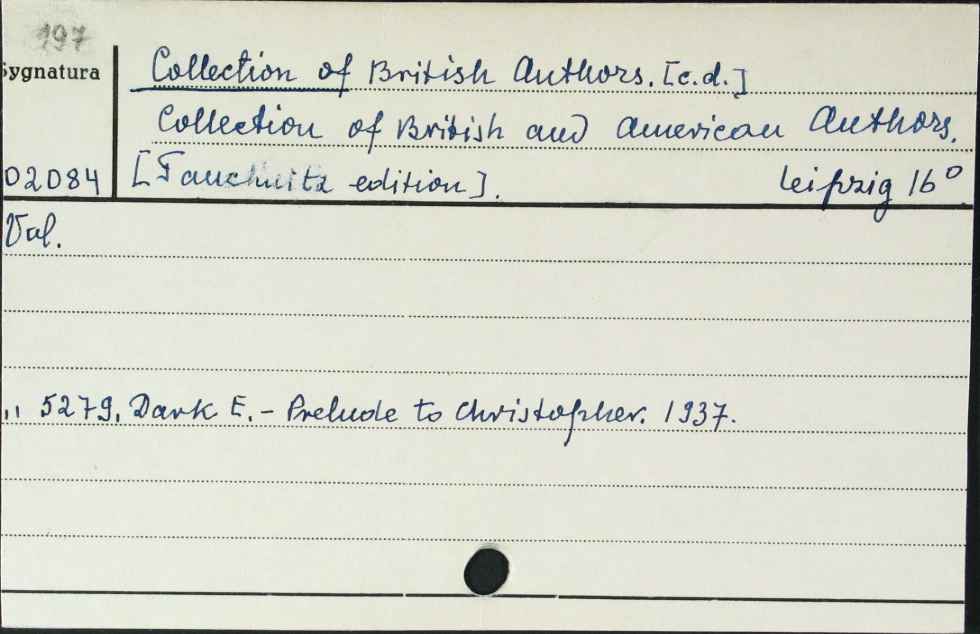 197
Sygnatura
Collection of British Authors. [c.d.]
Collection of British and American Authors.
02084
[Tauchnitz edition]. Leipzig 16°
Vol.
,, 5279. Dark E. – Prelude to Christopher. 1937.